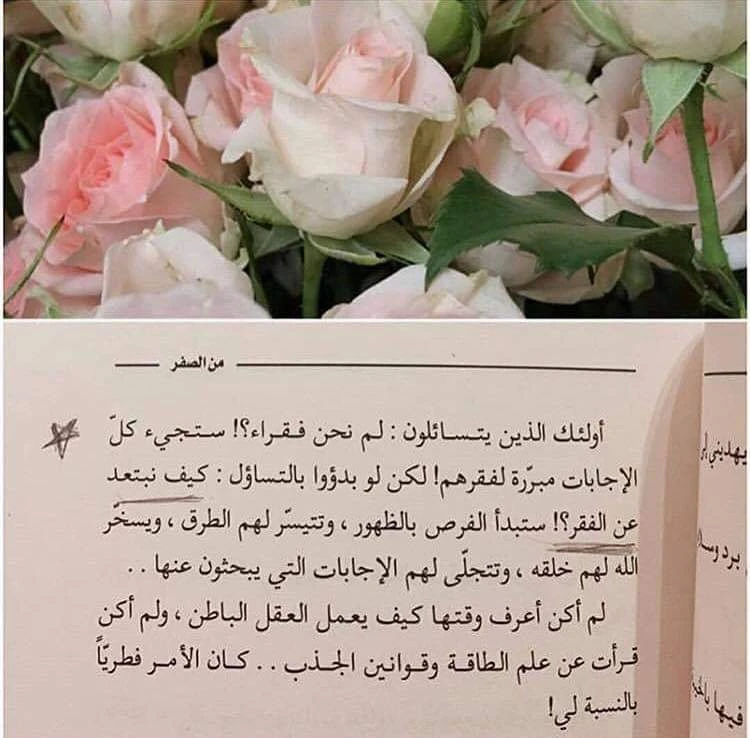 من الصفر
أولئك الذين يتسائلون : لم نحن فقراء؟! ستجيء كلّ
الإجابات مبرّرة لفقرهم! لكن لو بدؤوا بالتساؤل : كيف نبتعد
عن الفقر؟! ستبدأ الفرص بالظهور ، وتتيسّر لهم الطرق ، ويسخّر
الله لهم خلقه ، وتتجلّى لهم الإجابات التي يبحثون عنها . .
لم أكن أعرف وقتها كيف يعمل العقل الباطن ، ولم أكن
قرأت عن علم الطاقة وقوانين الجذب . . كان الأمر فطريّاً
بالنسبة لي!
يهديني إلى
برد وسلا
فيها